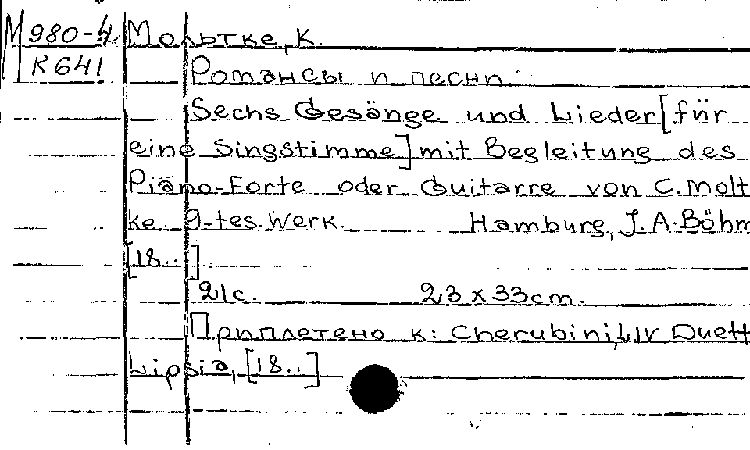 М 980-4 Мольтке, К.
К 641
Романсы и песни.
Sechs Gesänge und Lieder [für
eine Singstimme] mit Begleitung des
Piano-Forte oder Guitarre von C. Molt
ke 9-tes. Werk. Hamburg, J.A. Böhm
[18..]
21с. 23 x 33cm.
Приплетено к: Cherubini, LIV Duett
Lipsia, [18..]